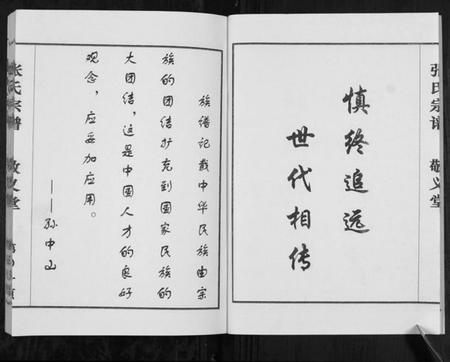 张氏宗谱 敬义堂
慎终追远
世代相传
族谱记载中华民族由宗
族的团结扩充到国家民族的
大团结，这是中国人才的良好
观念，应妥加应用。
——孙中山
张氏宗谱 敬义堂